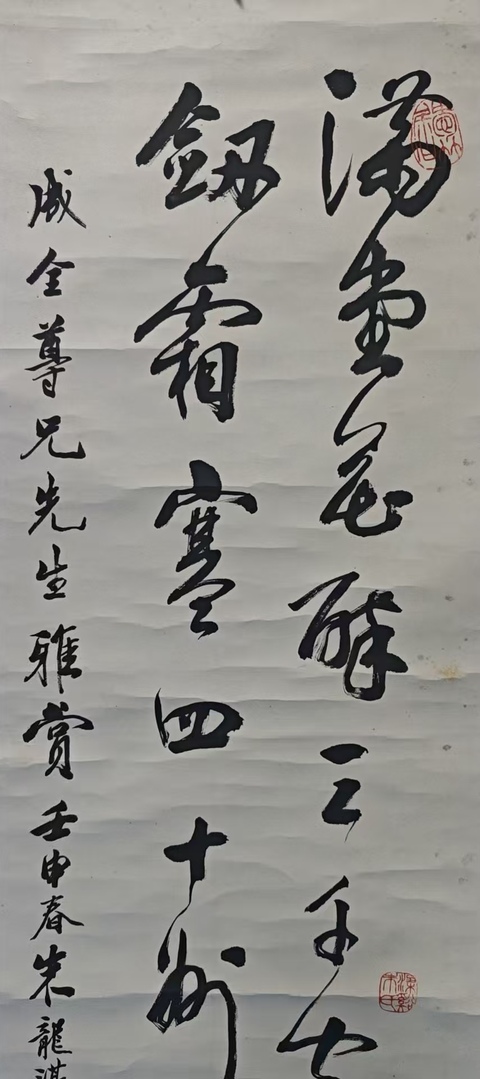 滿堂花醉三千客
劒霜寒四十州
成全尊兄先生雅賞壬申春朱龍湛